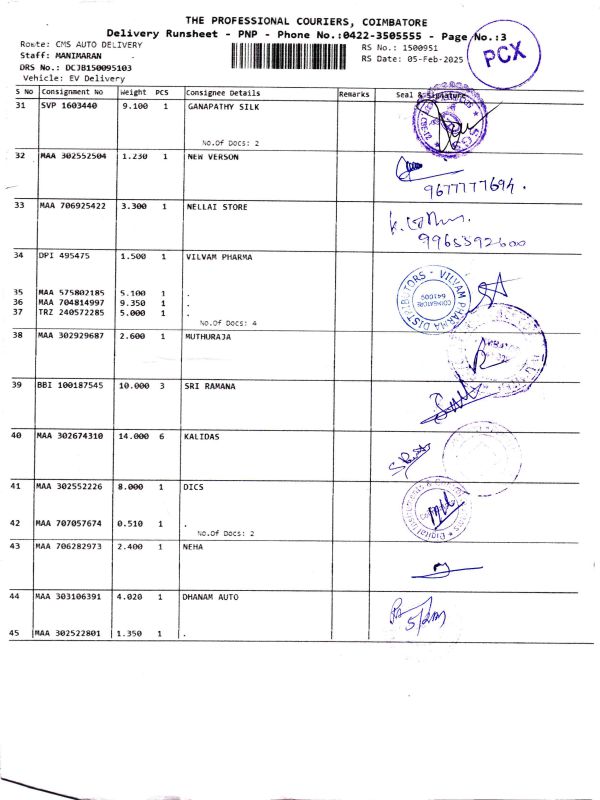 THE PROFESSIONAL COURIERS, COIMBATORE
Delivery Runsheet - PNP - Phone No.:0422-3505555 - Page No.:3
Route: CMS AUTO DELIVERY
RS No.: 1500951
Staff: MANIMARAN
RS Date: 05-Feb-2025
DRS No.: DCJB150095103
Vehicle: EV Delivery
PCX
S No Consignment No Weight PCS Consignee Details Remarks Seal & Signature
31 SVP 1603440 9.100 1 GANAPATHY SILK
No.Of Docs: 2
32 MAA 302552504 1.230 1 NEW VERSON
9677777694.
33 MAA 706925422 3.300 1 NELLAI STORE
9965592600
34 DPI 495475 1.500 1 VILVAM PHARMA
VILVAM PHARMA DISTRIBUTORS
COIMBATORE
641005
35 MAA 575802185 5.100 1 .
36 MAA 704814997 9.350 1 .
37 TRZ 240572285 5.000 1 .
No.Of Docs: 4
38 MAA 302929687 2.600 1 MUTHURAJA
39 BBI 100187545 10.000 3 SRI RAMANA
40 MAA 302674310 14.000 6 KALIDAS
41 MAA 302552226 8.000 1 DICS
42 MAA 707057674 0.510 1 .
No.Of Docs: 2
43 MAA 706282973 2.400 1 NEHA
44 MAA 303106391 4.020 1 DHANAM AUTO
45 MAA 302522801 1.350 1 .